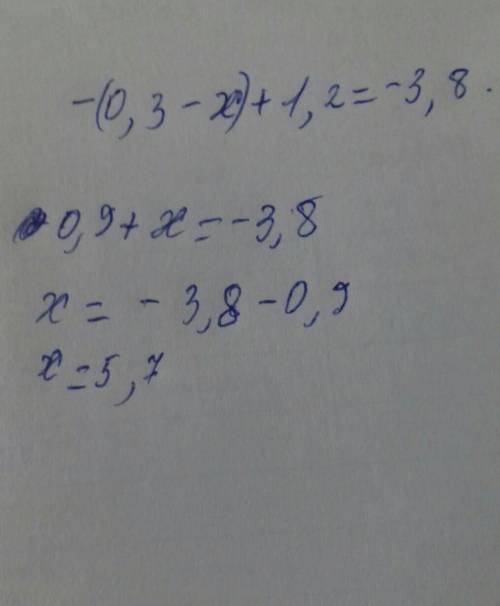 -(0,3 - x) + 1,2 = -3,8.
0,9 + x = -3,8
x = - 3,8 - 0,9
x = 5,7